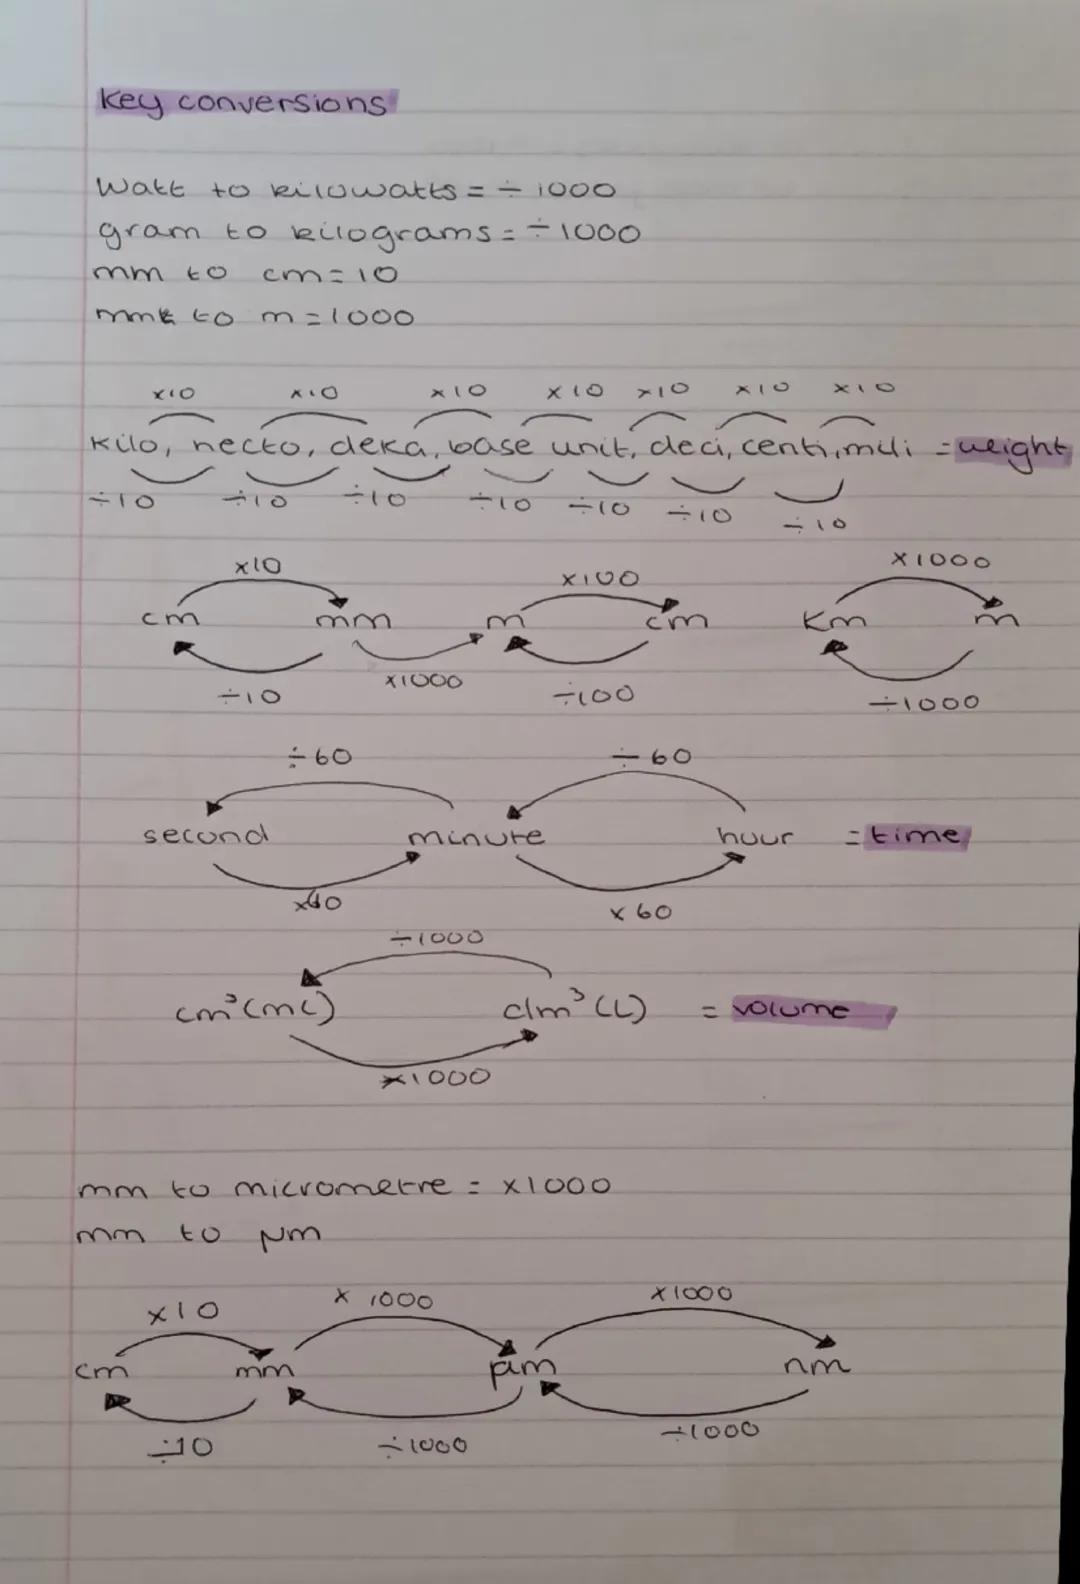 Key conversions
Watt to kilowatts = ÷ 1000
gram to kilograms = ÷ 1000
mm to cm = 10
mm to m = 1000
x10 x10 x10 x10 x10 x10 x10
kilo, hecto, deka, base unit, deci, centi, mili = weight
÷10 ÷10 ÷10 ÷10 ÷10 ÷10 ÷10
x10 x100 x1000
cm mm m cm Km m
÷10 x1000 ÷100 ÷1000
÷60 ÷60
second minute hour = time
x60 x60
÷1000
cm³(mL) dm³(L) = volume
x1000
mm to micrometre = x1000
mm to μm
x10 x 1000 x1000
cm mm μm nm
÷10 ÷1000 ÷1000